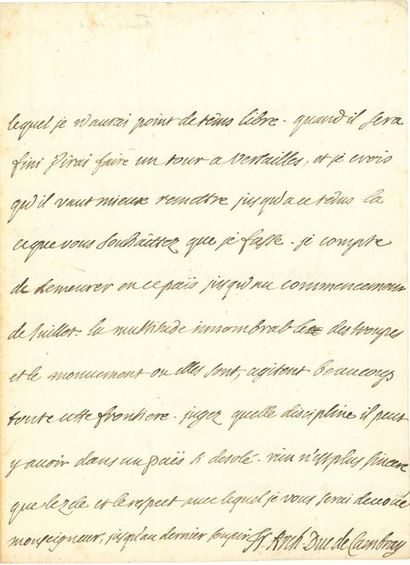 lequel je n'aurai point de tems libre. quand il sera
fini j'irai faire un tour a versailles, et je crois
qu'il vaut mieux remettre jusqu'a ce tems la
ce que vous souhaittez que je fasse. je compte
de demeurer en ce païs jusqu'au commencement
de Juillet. la multitude innombrable des troupes
et le mouvement ou elles sont, agitent beaucoup
toute cette frontiere. jugez quelle discipline il peut
y avoir dans un païs si desolé. rien n'est plus sincere
que le zele et le respect avec lequel je vous serai devoüé
monseigneur, jusqu'au dernier soupir fr. Arch. Duc de Cambray